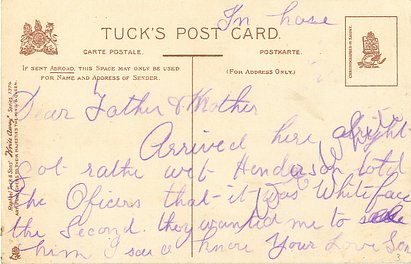 In haste
TUCK'S POST CARD.
CARTE POSTALE. POSTKARTE.
IF SENT ABROAD, THIS SPACE MAY ONLY BE USED
FOR NAME AND ADDRESS OF SENDER.
(FOR ADDRESS ONLY.)
Dear Father & Mother
Arrived here alright
got rathe wet Henderson told
the Oficers that it was Whiteface
the Second. they wanted me to
him I said know Your Love Son